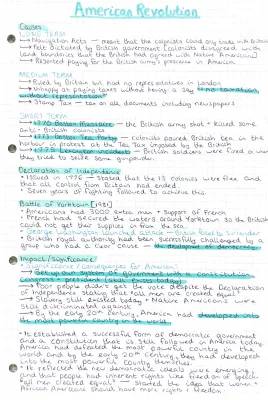 American Revolution
Causes
LONG TERM
→ Navigation Acts - meant that the colonists could only trade with Britain
→ Felt dictated by British government (colonists disagreed with
land boundaries that the British had agreed with Native Americans)
→ Resented paying for the British army's presence in America
MEDIUM TERM
→ Ruled by Britain but had no representatives in London
→ Unhappy at paying taxes without having a say "no taxation
without representation"
→ Stamp Tax - tax on all documents including newspapers
SHORT TERM
→ 1770: Boston Massacre - the British army shot + killed some
anti-British colonists
→ 1773: Boston Tea Party - colonists poured British tea in the
harbour in protest at the Tea Tax imposed by the British
→ 1775: Lexington incident - British soldiers were fired on when
they tried to seize some gunpowder.
Declaration of Independence
→ Issued in 1776 - stated that the 13 colonies were free and
that all control from Britain had ended.
→ Seven years of fighting followed to achieve this.
Battle of Yorktown [1781]
• Americans had 9000 extra men + support of French
• French had secured the waters around Yorktown so the British
could not get their supplies in from the sea.
• George Washington launched attack - British forced to surrender
• British royal authority had been successfully challenged by a
group who had a clear cause - the development of democracy
Impact/Significance
• Significance/consequences for America:
→ Set up our system of government with a constitution
→ Poor people didn't get the vote despite the Declaration
of Independence stating that "all men are created equal"
→ Slavery still existed today + Native Americans were
still discriminated against
→ By the early 20th Century, America had developed into
the most powerful country in the world.
• It established a successful form of democratic government
and a constitution that is still followed in America today.
America had defeated the most powerful country in the
world and by the early 20th Century they had developed
into the most powerful country themselves.
• It reflected the new democratic ideals were emerging
and that people had inherent rights like freedom of speech.
"all men created equal" - started the idea that women +
African Americans should have more rights + freedom